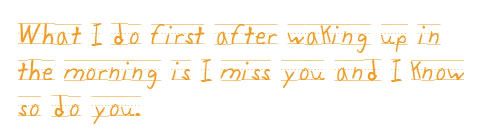 What I do first after waking up in
the morning is I miss you and I know
so do you.